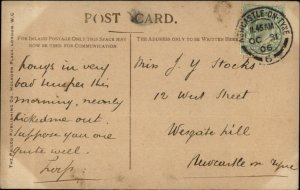 POST CARD.
FOR INLAND POSTAGE ONLY THIS SPACE MAY
NOW BE USED FOR COMMUNICATION
THE ADDRESS ONLY TO BE WRITTEN HERE
NEWCASTLE-ON-TYNE
OC 31
06
in very
bad temper this
morning, nearly
kicked me out.
suppose you are
quite well.
Miss J. Y. Stocks
12 West Street
Westgate Hill
Newcastle on Tyne